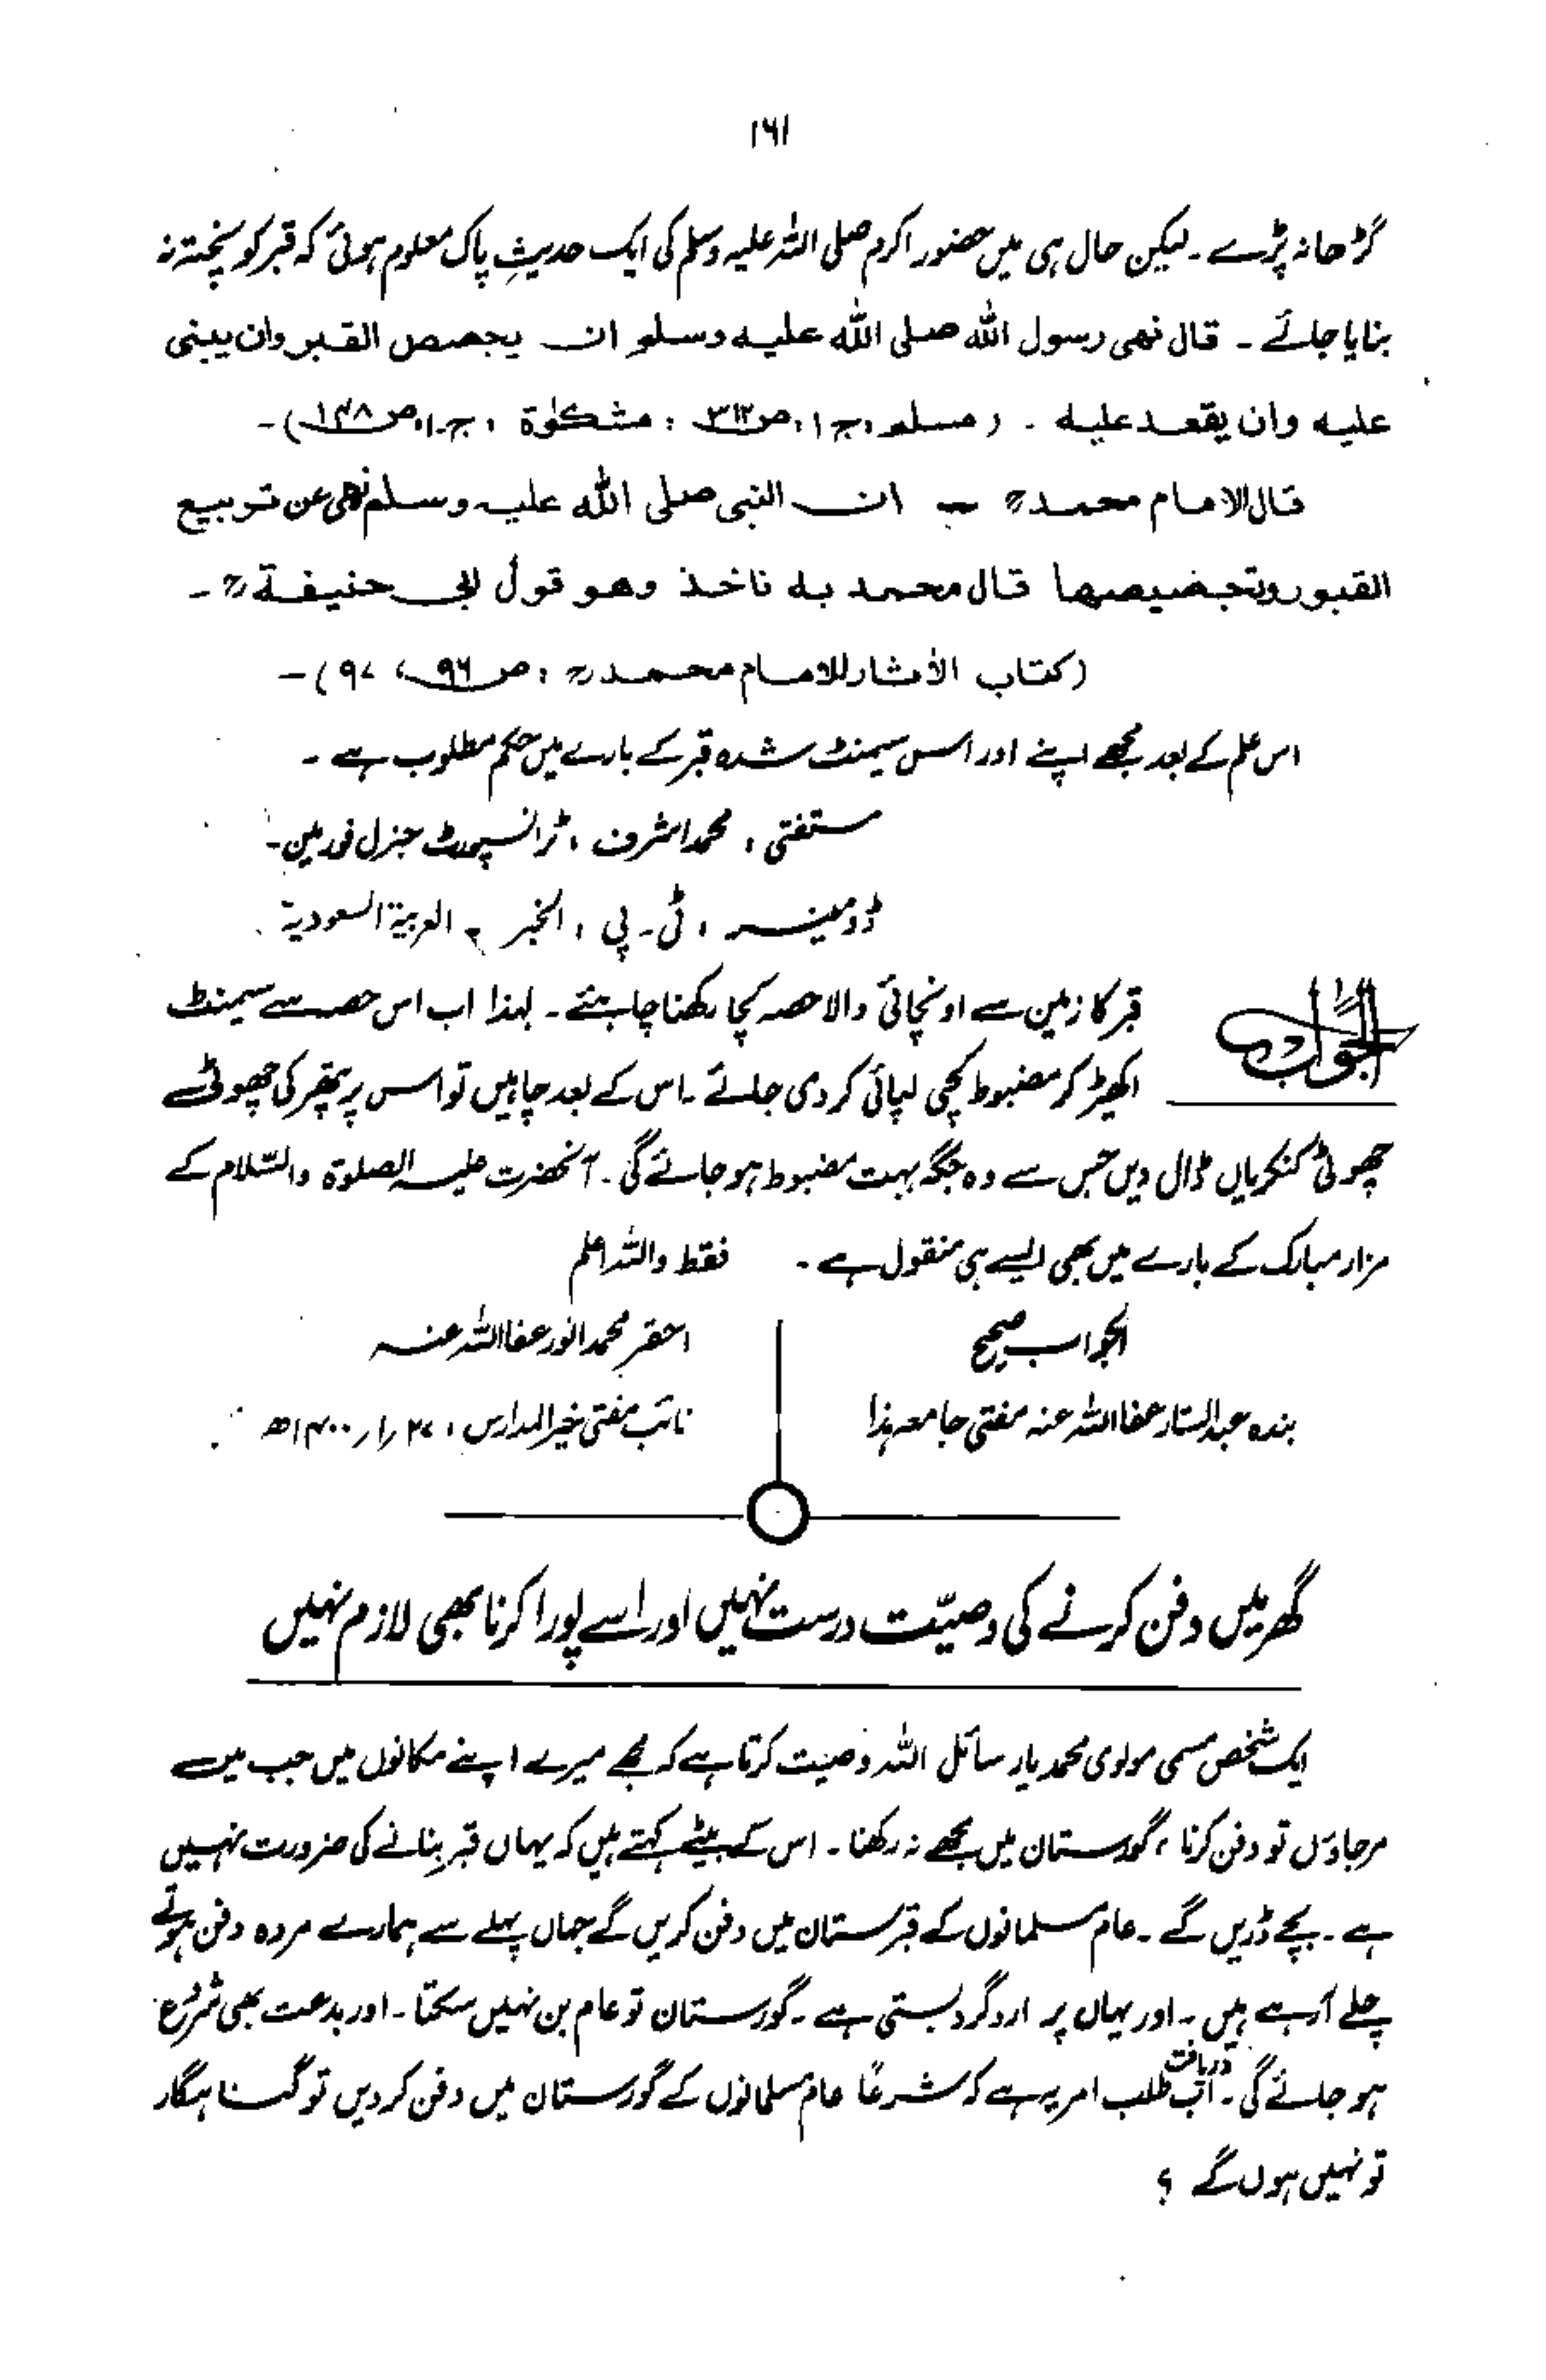 ۱۶۱
گڑھا نہ پڑے ۔ لیکن حال ہی میں حضور اکرم صلی اللہ علیہ وسلم کی ایک حدیثِ پاک معلوم ہوئی کہ قبر کو پختہ نہ
بنایا جائے ۔ قال نھی رسول اللہ صلی اللہ علیہ وسلم ان یجصص القبر وان یبنی
علیہ وان یقعد علیہ ۔ (مسلم، ج ۱، ص ۳۱۲ : مشکوٰۃ ، ج ۱، ص ۱۴۸)۔
قال الامام محمدؒ ان النبی صلی اللہ علیہ وسلم نھی عن تربیع
القبور وتجضیصھا قال محمد بہ ناخذ وھو قول ابی حنیفۃؒ ۔
(کتاب الأثار للامام محمدؒ ، ص ۹۶، ۹۷)۔
اس علم کے بعد مجھے اپنے اور اس سیمنٹ شدہ قبر کے بارے میں حکم مطلوب ہے ۔
مستفتی ، محمد اشرف ، ٹرانسپورٹ جنرل فورمین۔
ڈومینر ، ٹی ۔ پی ، الخبر ، العربیۃ السعودیۃ
الجواب
قبر کا زمین سے اونچائی والا حصہ کچا رکھنا چاہئے ۔ لہٰذا اب اس حصہ سے سیمنٹ
اکھیڑ کر مضبوط کچی لپائی کر دی جائے ۔ اس کے بعد چاہیں تو اس پر پتھر کی چھوٹی
چھوٹی کنکریاں ڈال دیں جس سے وہ جگہ بہت مضبوط ہو جائے گی ۔ آنحضرت علیہ الصلوۃ والسّلام کے
مزار مبارک کے بارے میں بھی ایسے ہی منقول ہے ۔ فقط واللہ اعلم
الجواب صحیح
بندہ عبدالستار عفا اللہ عنہ مفتی جامعہ ہذا
احقر محمد انور عفا اللہ عنہ
نائب مفتی خیر المدارس ، ۲۷/۱/۱۴۰۰ھ
گھر میں دفن کرنے کی وصیّت درست نہیں اور اسے پورا کرنا بھی لازم نہیں
ایک شخص مسمی مولوی محمد یار سائل اللہ وصیت کرتا ہے کہ مجھے میرے اپنے مکانوں میں جب میں
مر جاؤں تو دفن کرنا ، گورستان میں مجھے نہ رکھنا ۔ اس کے بیٹے کہتے ہیں کہ یہاں قبر بنانے کی ضرورت نہیں
ہے ۔ بچے ڈریں گے ۔ عام مسلمانوں کے قبرستان میں دفن کریں گے جہاں پہلے سے ہمارے مردہ دفن ہوتے
چلے آرہے ہیں ۔ اور یہاں پر اردگرد بستی ہے ۔ گورستان تو عام بن نہیں سکتا ۔ اور بدعت بھی شروع
ہو جائے گی ۔ اب دریافت طلب امر یہ ہے کہ شرعًا عام مسلمانوں کے گورستان میں دفن کردیں تو گناہگار
تو نہیں ہوں گے ؟